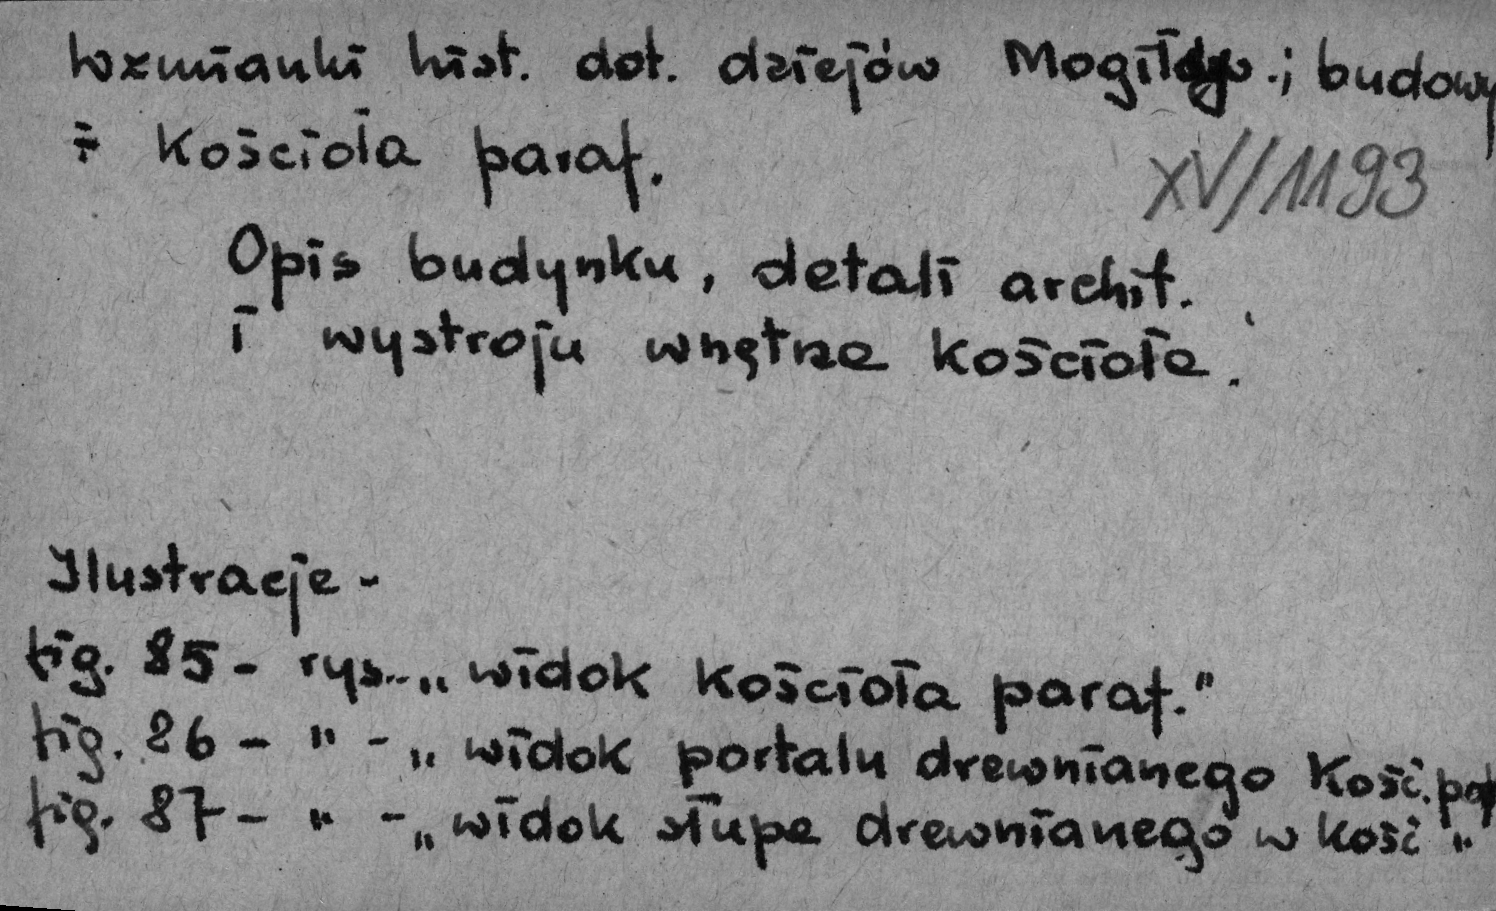 Wzmianki hist. dot. dziejów ; budowy
i kościoła paraf.
XV/1193
Opis budynku, detali archit.
i wystroju wnętrza kościoła.
Ilustracje -
fig. 85 - rys. - „widok kościoła paraf."
fig. 86 - " - „widok portalu drewnianego kość. par
fig. 87 - " - „widok słupa drewnianego w kość "